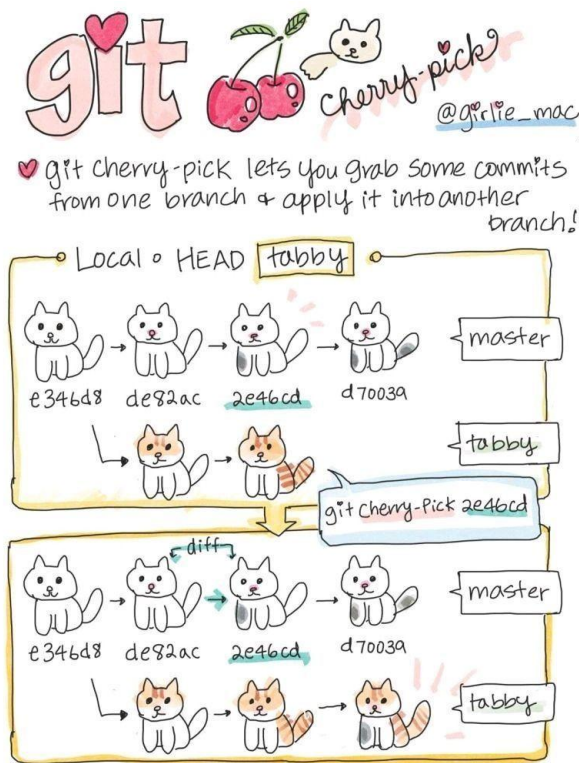 git cherry-pick
@girlie_mac
git cherry-pick lets you grab some commits
from one branch & apply it into another
branch!
Local • HEAD tabby
master
e346d8 de82ac 2e46cd d7003a
tabby
git cherry-pick 2e46cd
diff
master
e346d8 de82ac 2e46cd d7003a
tabby